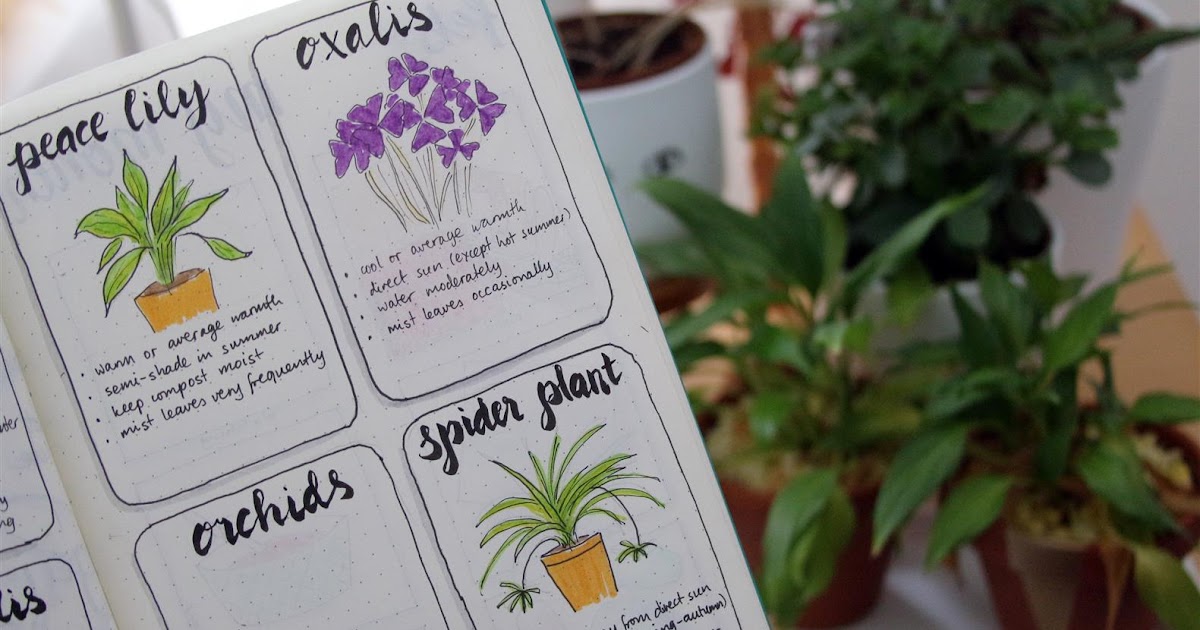 peace lily
• warm or average warmth
• semi-shade in summer
• keep compost moist
• mist leaves very frequently
oxalis
• cool or average warmth
• direct sun (except hot summer)
• water moderately
• mist leaves occasionally
orchids
spider plant
from direct sun
ing-autumn)
lis